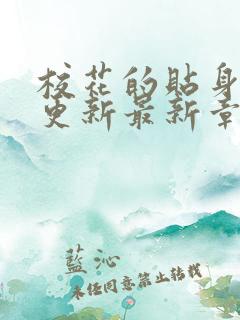 校花的贴身
更新最新章
藍沁
未经同意禁止转载